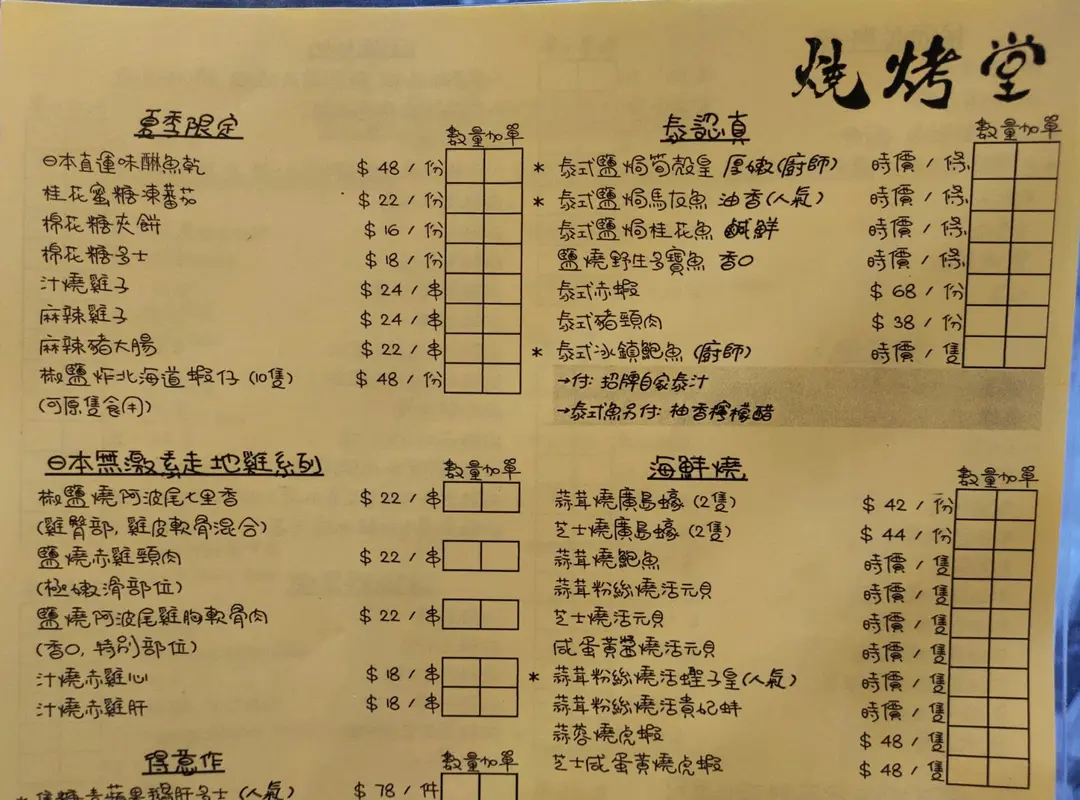 燒烤堂
夏季限定 數量加單
日本直運味醂魚乾 $ 48 / 份
桂花蜜糖凍蕃茄 $ 22 / 份
棉花糖夾餅 $ 16 / 份
棉花糖多士 $ 18 / 份
汁燒雞子 $ 24 / 串
麻辣雞子 $ 24 / 串
麻辣豬大腸 $ 22 / 串
椒鹽炸北海道蝦仔 (10隻) $ 48 / 份
(可原隻食用)
日本無激素走地雞系列 數量加單
椒鹽燒阿波尾七里香 $ 22 / 串
(雞臀部, 雞皮軟骨混合)
鹽燒赤雞頸肉 $ 22 / 串
(極嫩滑部位)
鹽燒阿波尾雞胸軟骨肉 $ 22 / 串
(香口, 特別部位)
汁燒赤雞心 $ 18 / 串
汁燒赤雞肝 $ 18 / 串
得意作 數量加單
* 焦糖青蘋果鵝肝多士 (人氣) $ 78 / 件
泰認真 數量加單
* 泰式鹽焗筍殼皇 厚嫩 (廚師) 時價 / 條
* 泰式鹽焗馬友魚 油香 (人氣) 時價 / 條
泰式鹽焗桂花魚 鹹鮮 時價 / 條
鹽燒野生多寶魚 香口 時價 / 條
泰式赤蝦 $ 68 / 份
泰式豬頸肉 $ 38 / 份
* 泰式冰鎮鮑魚 (廚師) 時價 / 隻
→付: 招牌自家泰汁
→泰式魚另付: 柚香檸檬醋
海鮮燒 數量加單
蒜茸燒廣島蠔 (2隻) $ 42 / 份
芝士燒廣島蠔 (2隻) $ 44 / 份
蒜茸燒鮑魚 時價 / 隻
蒜茸粉絲燒活元貝 時價 / 隻
芝士燒活元貝 時價 / 隻
咸蛋黃醬燒活元貝 時價 / 隻
* 蒜茸粉絲燒活蟶子皇 (人氣) 時價 / 隻
蒜茸粉絲燒活貴妃蚌 時價 / 隻
蒜蓉燒虎蝦 $ 48 / 隻
芝士咸蛋黃燒虎蝦 $ 48 / 隻